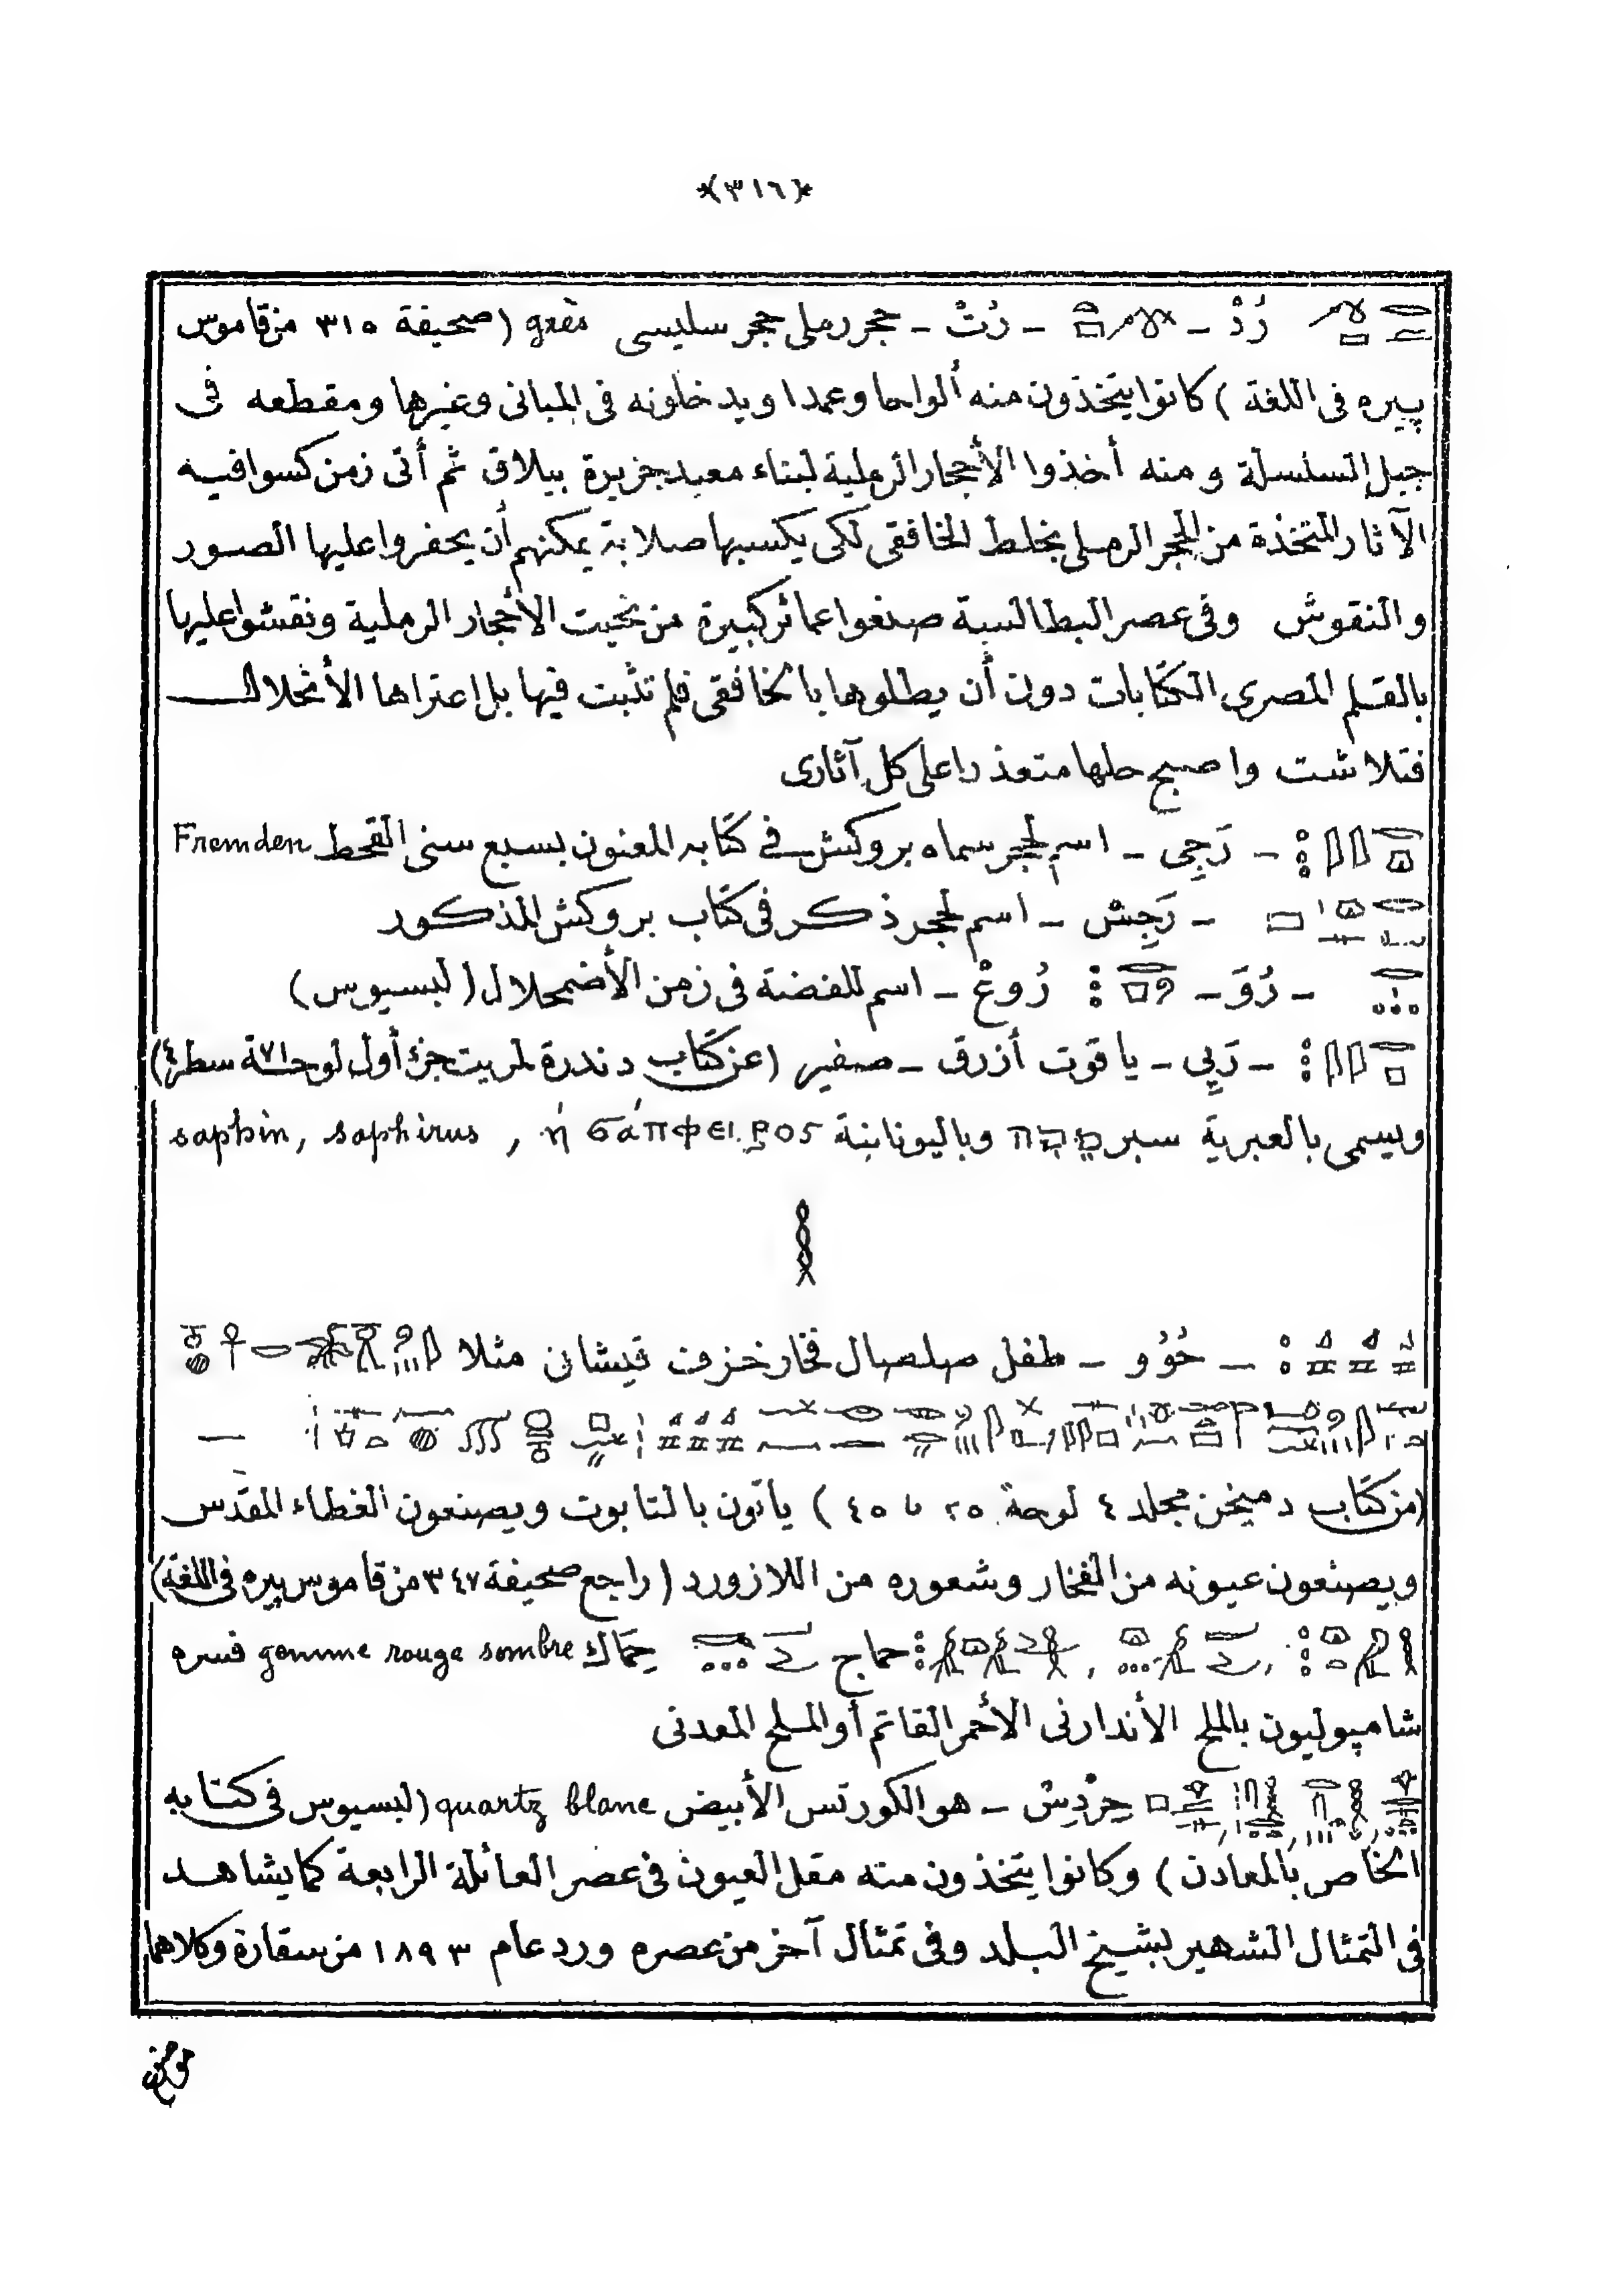 *(٣١٦)*
رُدْ - - رُتْ - حجر رملى حجر سليسى grès (صحيفة ٣١٥ من قاموس
پيره فى اللغة) كانوا يتخذون منه ألواحا وعمدا ويدخلونه فى المبانى وغيرها ومقطعه فى
جبل السلسلة ومنه أخذوا الأحجار الرملية لبناء معبد جزيرة بيلاق ثم أتى زمن كسوا فيه
الآثار المتخذة من الحجر الرملى بخلط الخافقى لكى يكسبها صلابة يمكنهم أن يحفروا عليها الصور
والنقوش وفى عصر البطالسة صنعوا عمائر كبيرة من نحيت الأحجار الرملية ونقشوا عليها
بالقلم المصرى الكتابات دون أن يطلوها بالخافقى فلم تثبت فيها بل اعتراها الأنحلال
فتلاشت واصبح حلها متعذرا على كل آثارى
- رَجِى - اسم لحجر سماه بروكش فى كتابه المعنون بسبع سنى القحط Fremden
- رَجِسْ - اسم لحجر ذكر فى كتاب بروكش المذكور
- رُوَ - رُوعْ - اسم للفضة فى زمن الأضمحلال (لبسيوس)
- رَپِى - ياقوت أزرق - صفير (عن كتاب دندرة لمريت جزء أول لوحة ٧١ سطر ٤)
ويسمى بالعبرية سبر وباليونانية ἡ σάπφειρος , saphin, saphirus
- حُوُو - طفل صلصال فخار خزف قيشانى مثلا
(من كتاب دميخن مجلد ٤ لوحة ٢٥ ٤٥) ياتون بالتابوت ويصنعون الغطاء المقدس
ويصنعون عيونه من الفخار وشعوره من اللازورد (راجع صحيفة ٣٤٧ من قاموس پيره فى اللغة)
حماج حِمَاك gemme rouge sombre فسره
شامپوليون بالملح الأندارنى الأحمر القاتم أو الملح المعدنى
حِرْدِسْ - هو الكورتس الأبيض quartz blanc (لبسيوس فى كتابه
الخاص بالمعادن) وكانوا يتخذون منه مقل العيون فى عصر العائلة الرابعة كما يشاهد
فى التمثال الشهير بشيخ البلد وفى تمثال آخر من عصره ورد عام ١٨٩٣ من سقارة وكلاهما